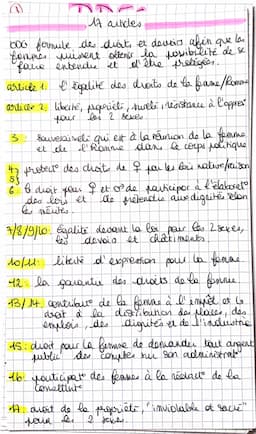 17 articles
ODG formule des droits et devoirs afin que les
femmes puissent obtenir la possibilité de se
faire entendre et d'être protégées.
article 1: l'égalité des droits de la femme/homme
article 2: liberté, propriété, sureté, résistance à l'oppres°
pour les 2 sexes
3: souveraineté qui est à la réunion de la femme
et de l'homme dans le corps politique
4/5 protect° des droits de ♀ par les lois nature/raison
6 droit pour ♀ et ♂ de participer à l'élaborat°
des lois et de prétendre aux dignités selon
les mérites.
7/8/9/10: égalité devant la loi pour les 2 sexes,
les devoirs et châtiments
10/11: liberté d'expression pour la femme
12: la garantie des droits de la femme
13/14: contribut° de la femme à l'impôt et le
droit à la distribution des places, des
emplois, des dignités et de l'industrie
15: droit pour la femme de demander tout argent
public des comptes sur son administrat°
16: participat° des femmes à la rédact° de la
constitut°
17: droit de la propriété, "inviolable et sacré"
pour les 2 sexes.